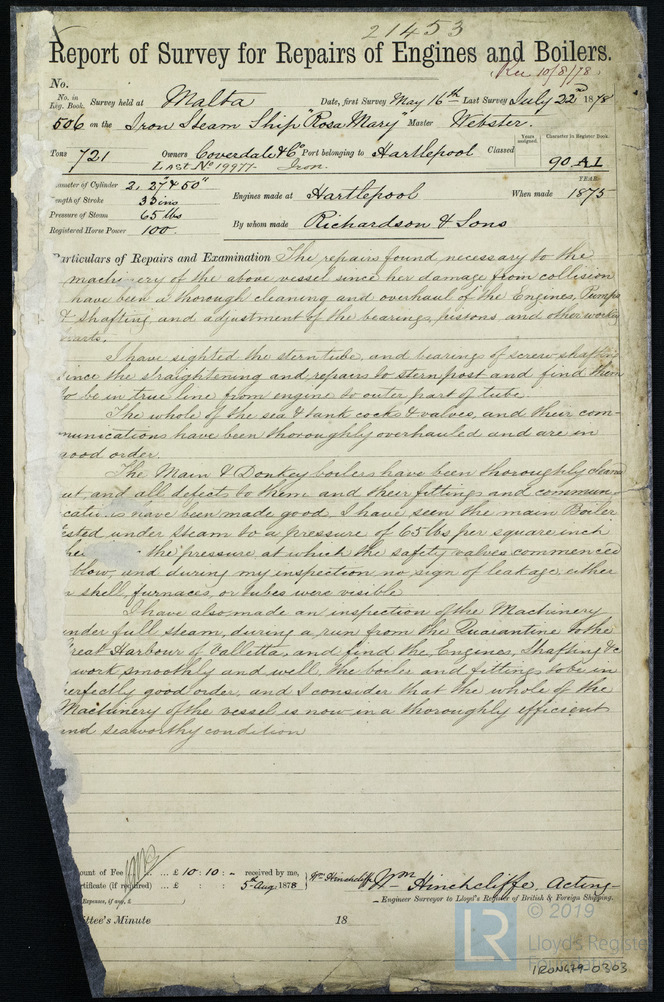 21453
Report of Survey for Repairs of Engines and Boilers.
Rec 10/8/78
No.
No. in Reg. Book. Survey held at Malta Date, first Survey May 16th Last Survey July 22nd 1878
506 on the Iron Steam Ship "Rosa Mary" Master Webster.
Tons 721 Owners Coverdale & Co Port belonging to Hartlepool Classed Years assigned. Character in Register Book 90 A1
Last No 19977. Iron.
ameter of Cylinder 2, 27" & 50"
ength of Stroke 33 ins
Pressure of Steam 65 lbs
Registered Horse Power 100.
Engines made at Hartlepool When made YEAR. 1875
By whom made Richardson & Sons
Particulars of Repairs and Examination The repairs found necessary to the
machinery of the above vessel since her damage from collision
have been a thorough cleaning and overhaul of the Engines, Pumps
& Shafting and adjustment of the bearings, pistons and other working
parts.
I have sighted the stern tube, and bearings of screw shafting
since the straightening and repairs to sternpost and find them
to be in true line from engine to outer part of tube.
The whole of the sea & tank cocks & valves, and their com-
munications have been thoroughly overhauled and are in
good order.
The Main & Donkey boilers have been thoroughly cleaned
out, and all defects to them and their fittings and commun-
catio s have been made good, I have seen the main Boiler
ested under steam to a pressure of 65 lbs per square inch
the pressure at which the safety valves commenced
blow, and during my inspection no sign of leakage either
n shell, furnaces, or tubes were visible
I have also made an inspection of the Machinery
under full steam, during a run from the Quarantine to the
reat Harbour of Valletta, and find the Engines, Shafting &c
work smoothly and well, the boiler and fittings to be in
perfectly good order, and I consider that the whole of the
Machinery of the vessel is now in a thoroughly efficient
and seaworthy condition
ount of Fee ... £ 10 : 10 : - received by me,
rtificate (if required) ... £ : : 5th Aug. 1878 Wm Hinchcliffe
Expenses, if any, £ )
Wm Hinchcliffe. Acting
Engineer Surveyor to Lloyd's Register of British & Foreign Shipping.
ittee's Minute 18
LR
© 2019
Lloyd's Register
Foundation
IRON479-0303